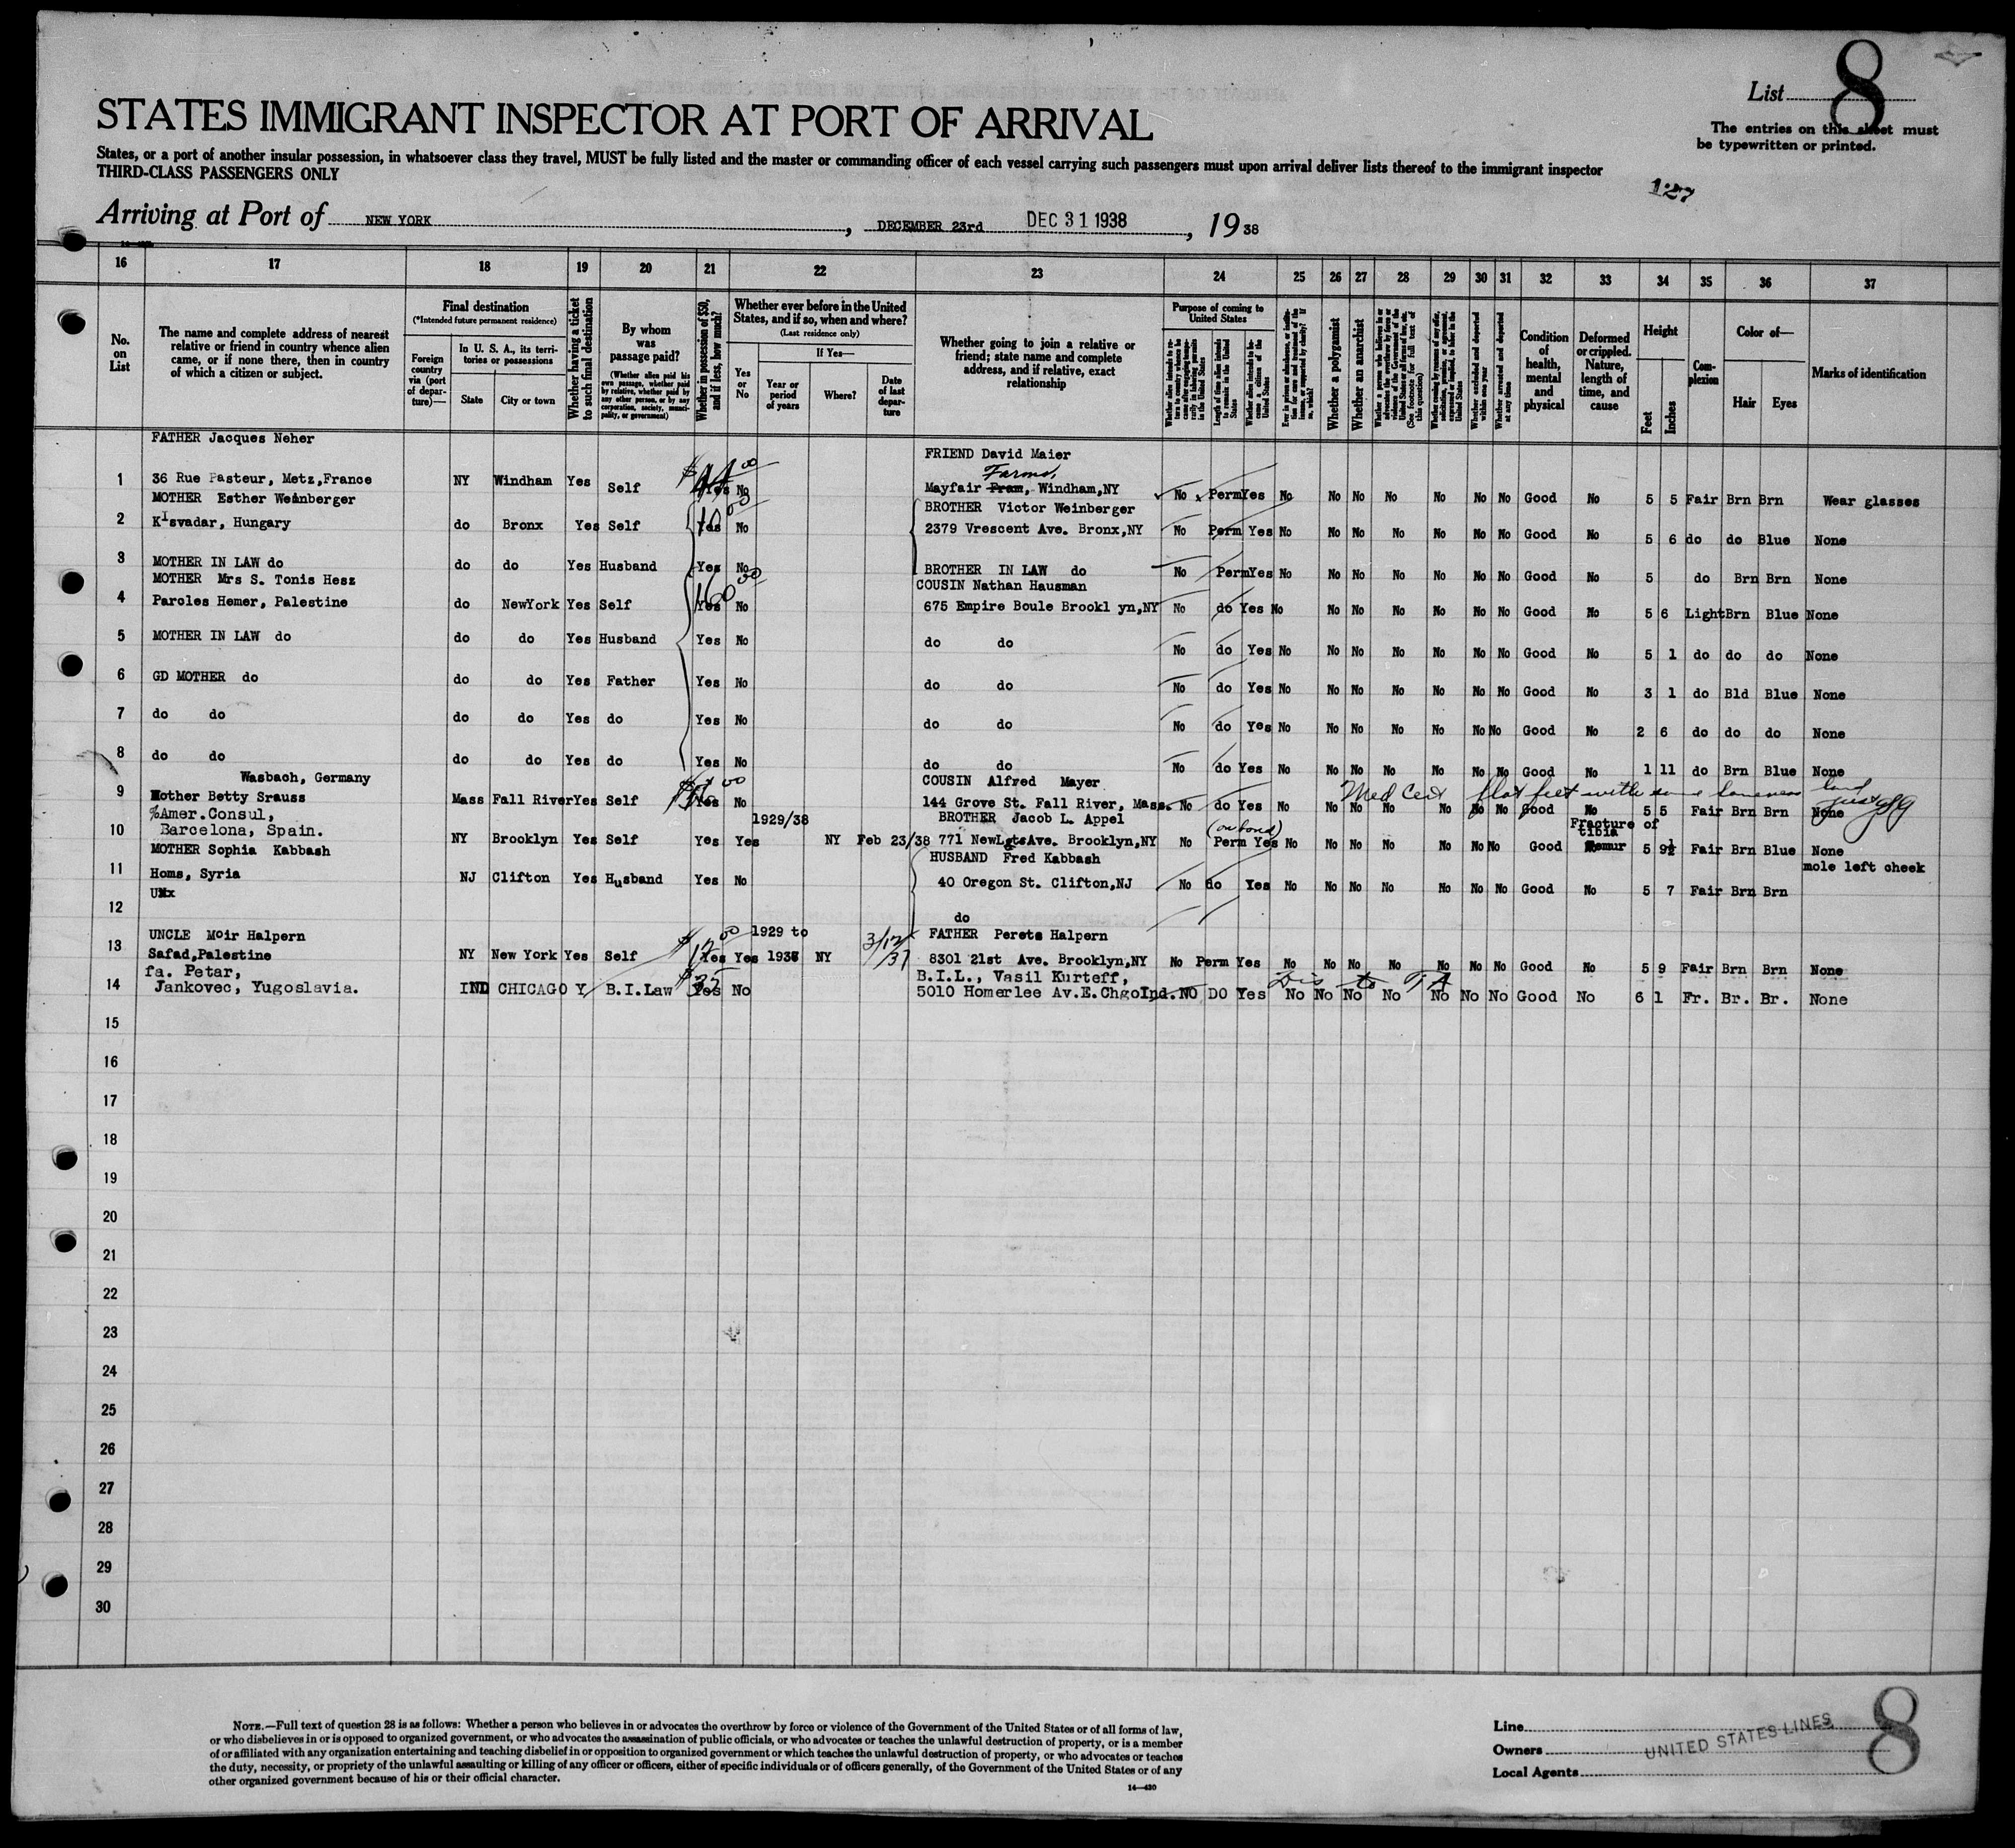 List 8
The entries on this sheet must
be typewritten or printed.
STATES IMMIGRANT INSPECTOR AT PORT OF ARRIVAL
States, or a port of another insular possession, in whatsoever class they travel, MUST be fully listed and the master or commanding officer of each vessel carrying such passengers must upon arrival deliver lists thereof to the immigrant inspector
THIRD-CLASS PASSENGERS ONLY
127
Arriving at Port of NEW YORK, DECEMBER 23rd DEC 31 1938, 19 38
16 17 18 19 20 21 22 23 24 25 26 27 28 29 30 31 32 33 34 35 36 37
No. on List
The name and complete address of nearest
relative or friend in country whence alien
came, or if none there, then in country
of which a citizen or subject.
Final destination
(*Intended future permanent residence)
Foreign country via (port of departure)—
In U. S. A., its territories or possessions
State City or town
Whether having a ticket to such final destination
By whom was passage paid?
(Whether alien paid his own passage, whether paid by relative, whether paid by any other person, or by any corporation, society, municipality, or government)
Whether in possession of $50, and if less, how much?
Whether ever before in the United
States, and if so, when and where?
(Last residence only)
Yes or No
If Yes—
Year or period of years
Where?
Date of last departure
Whether going to join a relative or
friend; state name and complete
address, and if relative, exact
relationship
Purpose of coming to United States
Whether a polygamist
Whether an anarchist
Condition of health, mental and physical
Deformed or crippled. Nature, length of time, and cause
Height
Feet Inches
Complexion
Color of—
Hair Eyes
Marks of identification
FATHER Jacques Neher FRIEND David Maier
Farms,
1 36 Rue Pasteur, Metz,France NY Windham Yes Self $44.00 Yes No Mayfair Fram, Windham,NY No Perm Yes No No No No No No No Good No 5 5 Fair Brn Brn Wear glasses
MOTHER Esther Weinberger BROTHER Victor Weinberger
2 Kisvadar, Hungary do Bronx Yes Self Yes No 2379 Vrescent Ave. Bronx,NY No Perm Yes No No No No No No No Good No 5 6 do do Blue None
3 MOTHER IN LAW do do do Yes Husband Yes No BROTHER IN LAW do No Perm Yes No No No No No No No Good No 5 do Brn Brn None
MOTHER Mrs S. Tonis Hesz COUSIN Nathan Hausman
4 Paroles Hemer, Palestine do NewYork Yes Self Yes No 675 Empire Boule Brookl yn,NY No do Yes No No No No No No No Good No 5 6 Light Brn Blue None
5 MOTHER IN LAW do do do Yes Husband Yes No do do No do Yes No No No No No No No Good No 5 1 do do do None
6 GD MOTHER do do do Yes Father Yes No do do No do Yes No No No No No No No Good No 3 1 do Bld Blue None
7 do do do do Yes do Yes No do do No do Yes No No No No No No No Good No 2 6 do do do None
8 do do do do Yes do Yes No do do No do Yes No No No No No No No Good No 1 11 do Brn Blue None
Wasbach, Germany COUSIN Alfred Mayer
Med Cert flat feet with some lameness
9 Mother Betty Srauss Mass Fall River Yes Self Yes No 144 Grove St. Fall River, Mass. No do Yes No No No No No No No Good No 5 5 Fair Brn Brn None
%Amer.Consul, 1929/38 BROTHER Jacob L. Appel
(on bond) Fracture of tibia
10 Barcelona, Spain. NY Brooklyn Yes Self Yes Yes NY Feb 23/38 771 NewLgtsAve. Brooklyn,NY No Perm Yes No No No No No No No Good femur 5 9½ Fair Brn Blue None
MOTHER Sophia Kabbash HUSBAND Fred Kabbash mole left cheek
11 Homs, Syria NJ Clifton Yes Husband Yes No 40 Oregon St. Clifton,NJ No do Yes No No No No No No No Good No 5 7 Fair Brn Brn
12 do
UNCLE Moir Halpern 1929 to 3/12/37 FATHER Perets Halpern
13 Safad,Palestine NY New York Yes Self $12.00 Yes Yes 1937 NY 8301 21st Ave. Brooklyn,NY No Perm Yes No No No No No No No Good No 5 9 Fair Brn Brn None
fa. Petar, B.I.L., Vasil Kurteff,
14 Jankovec, Yugoslavia. IND CHICAGO Y B.I.Law $35 Yes No 5010 Homerlee Av.E.Chgo Ind. NO DO Yes No No No No No No No Good No 6 1 Fr. Br. Br. None
15
16
17
18
19
20
21
22
23
24
25
26
27
28
29
30
NOTE.—Full text of question 28 is as follows: Whether a person who believes in or advocates the overthrow by force or violence of the Government of the United States or of all forms of law,
or who disbelieves in or is opposed to organized government, or who advocates the assassination of public officials, or who advocates or teaches the unlawful destruction of property, or is a member
of or affiliated with any organization entertaining and teaching disbelief in or opposition to organized government or which teaches the unlawful destruction of property, or who advocates or teaches
the duty, necessity, or propriety of the unlawful assaulting or killing of any officer or officers, either of specific individuals or of officers generally, of the Government of the United States or of any
other organized government because of his or their official character.
14—430
Line
Owners UNITED STATES LINES
Local Agents
8